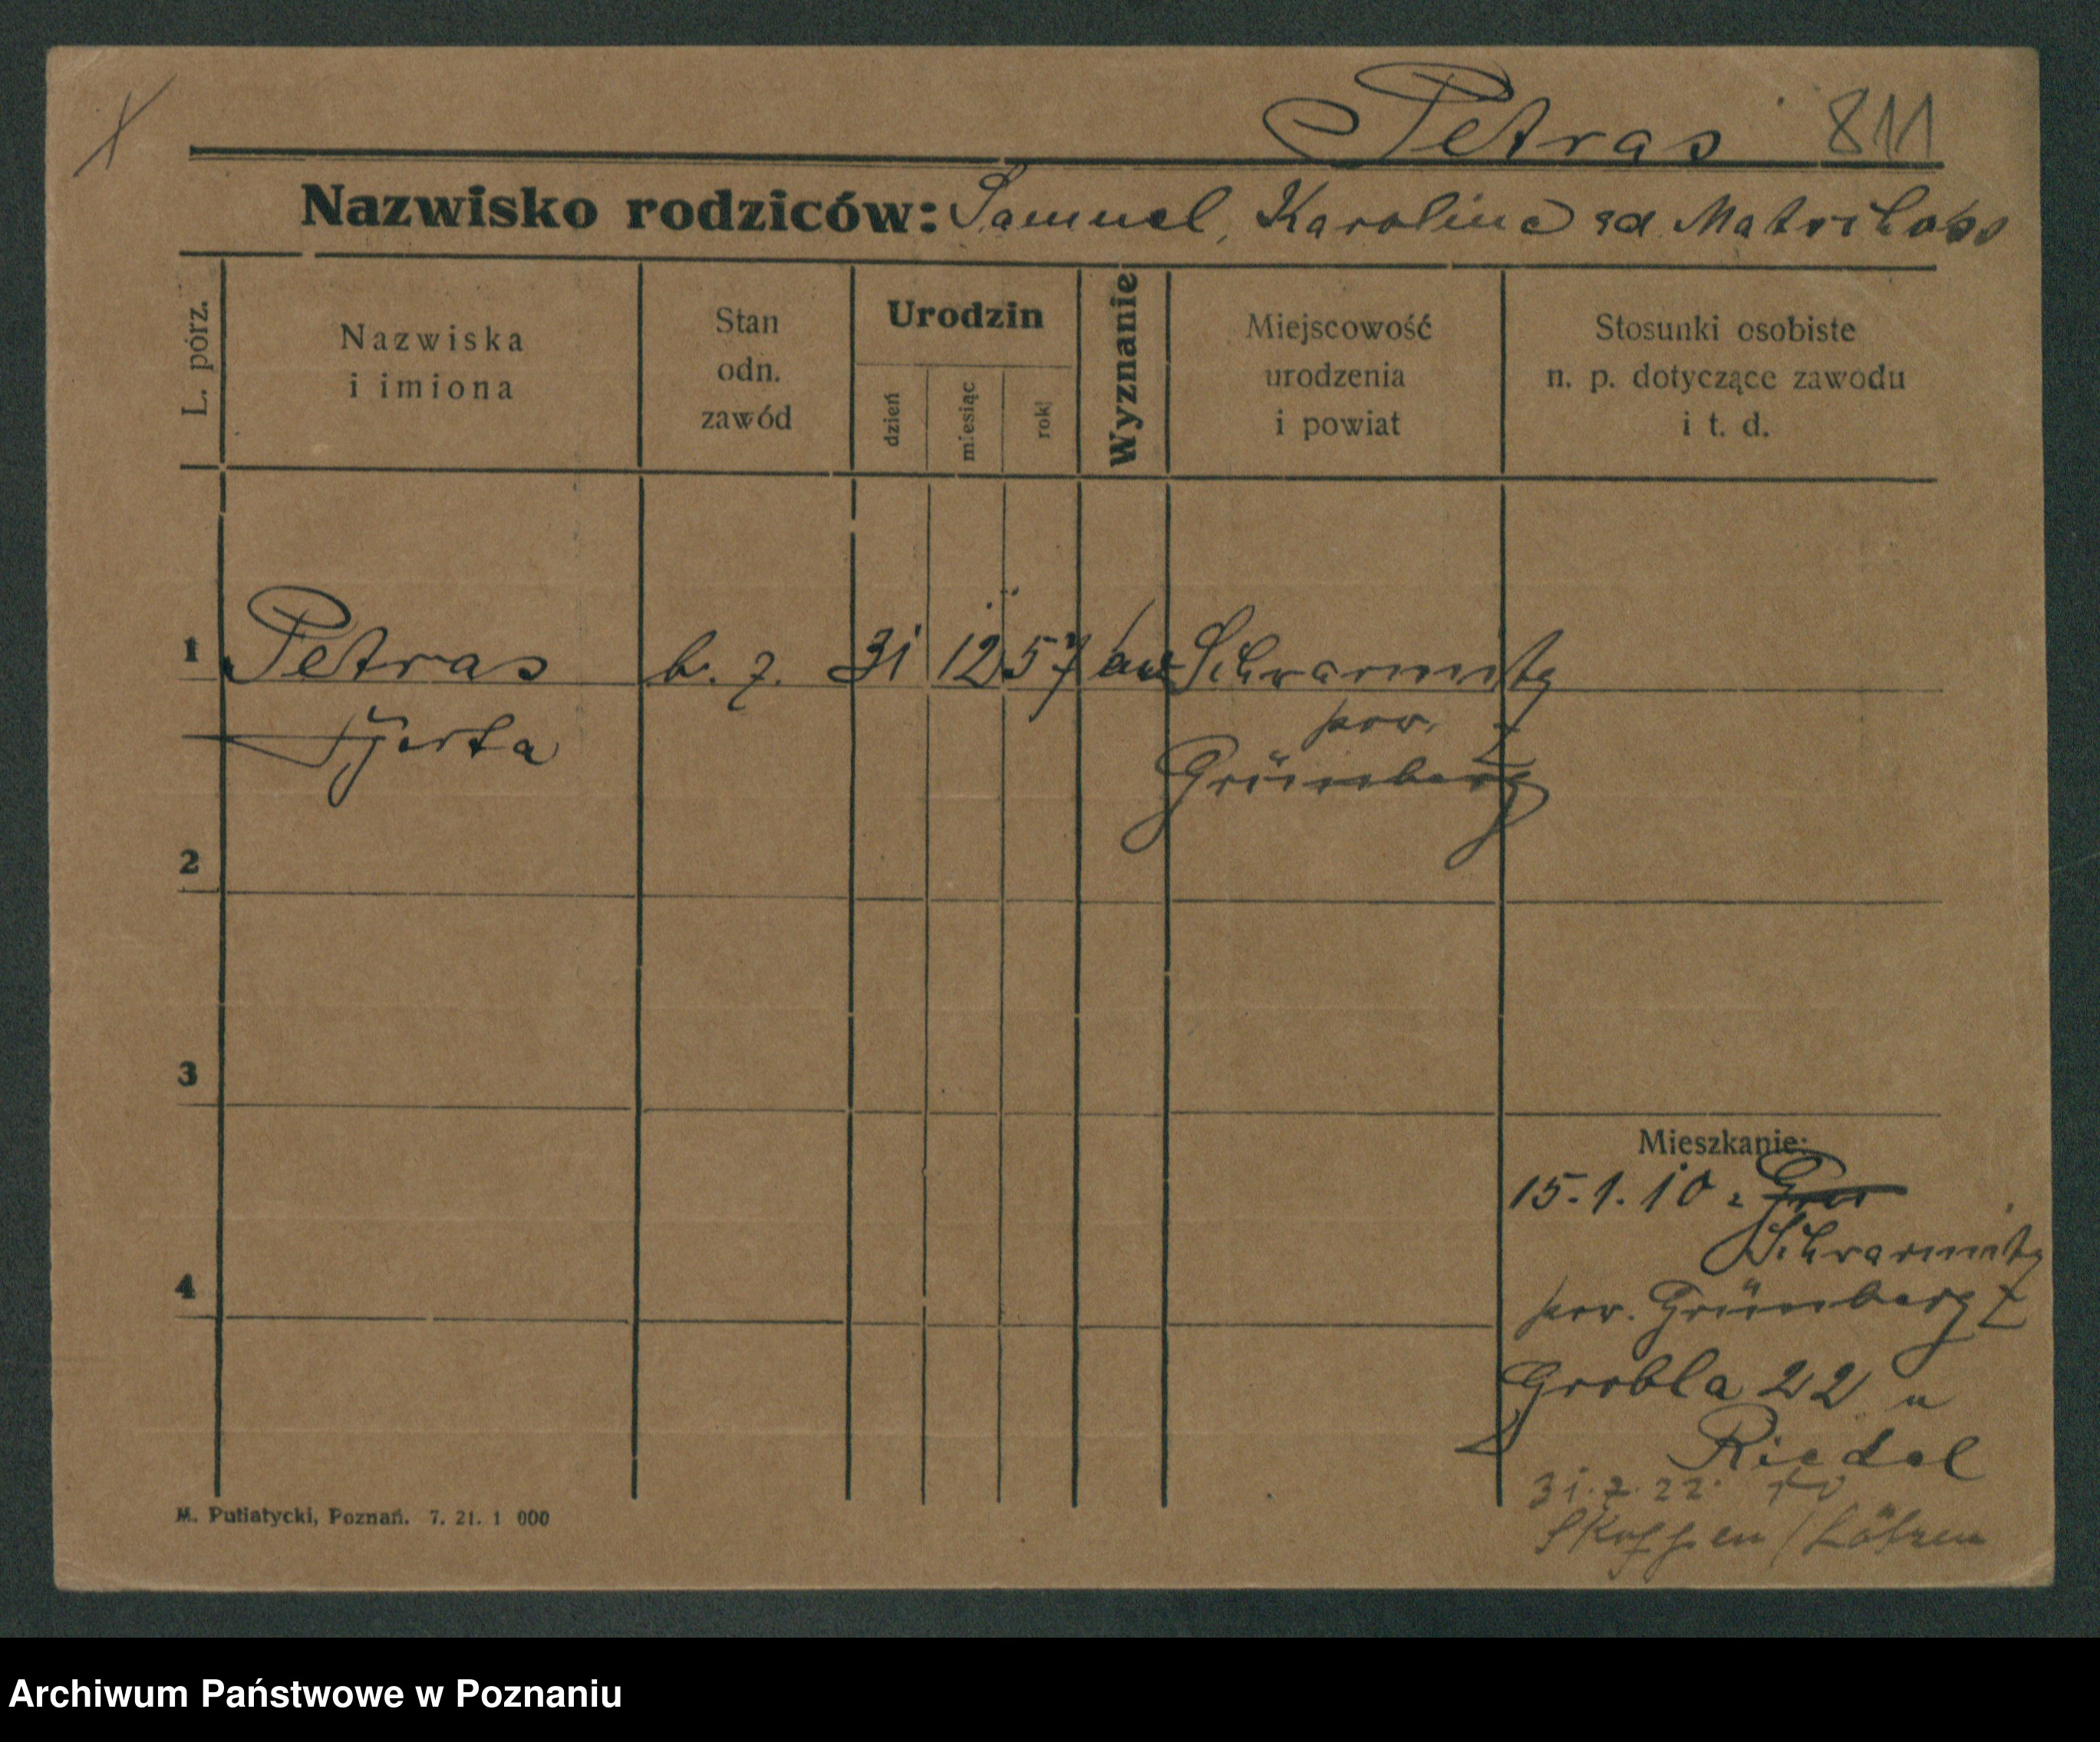 Petras 811
Nazwisko rodziców: Samuel, Karolina
L. porz.
Nazwiska
i imiona
Stan
odn.
zawód
Urodzin
dzień
miesiąc
rok
Wyznanie
Miejscowość
urodzenia
i powiat
Stosunki osobiste
n. p. dotyczące zawodu
i t. d.
1 Petras b. z. 31 12 57 ew
pow.
Grünberg
2
3
Mieszkanie:
15.1.10 z
4
pow. Grünberg
Grobla 22 u
Riedel
31.7.22.
M. Putiatycki, Poznań. 7. 21. 1 000
Archiwum Państwowe w Poznaniu